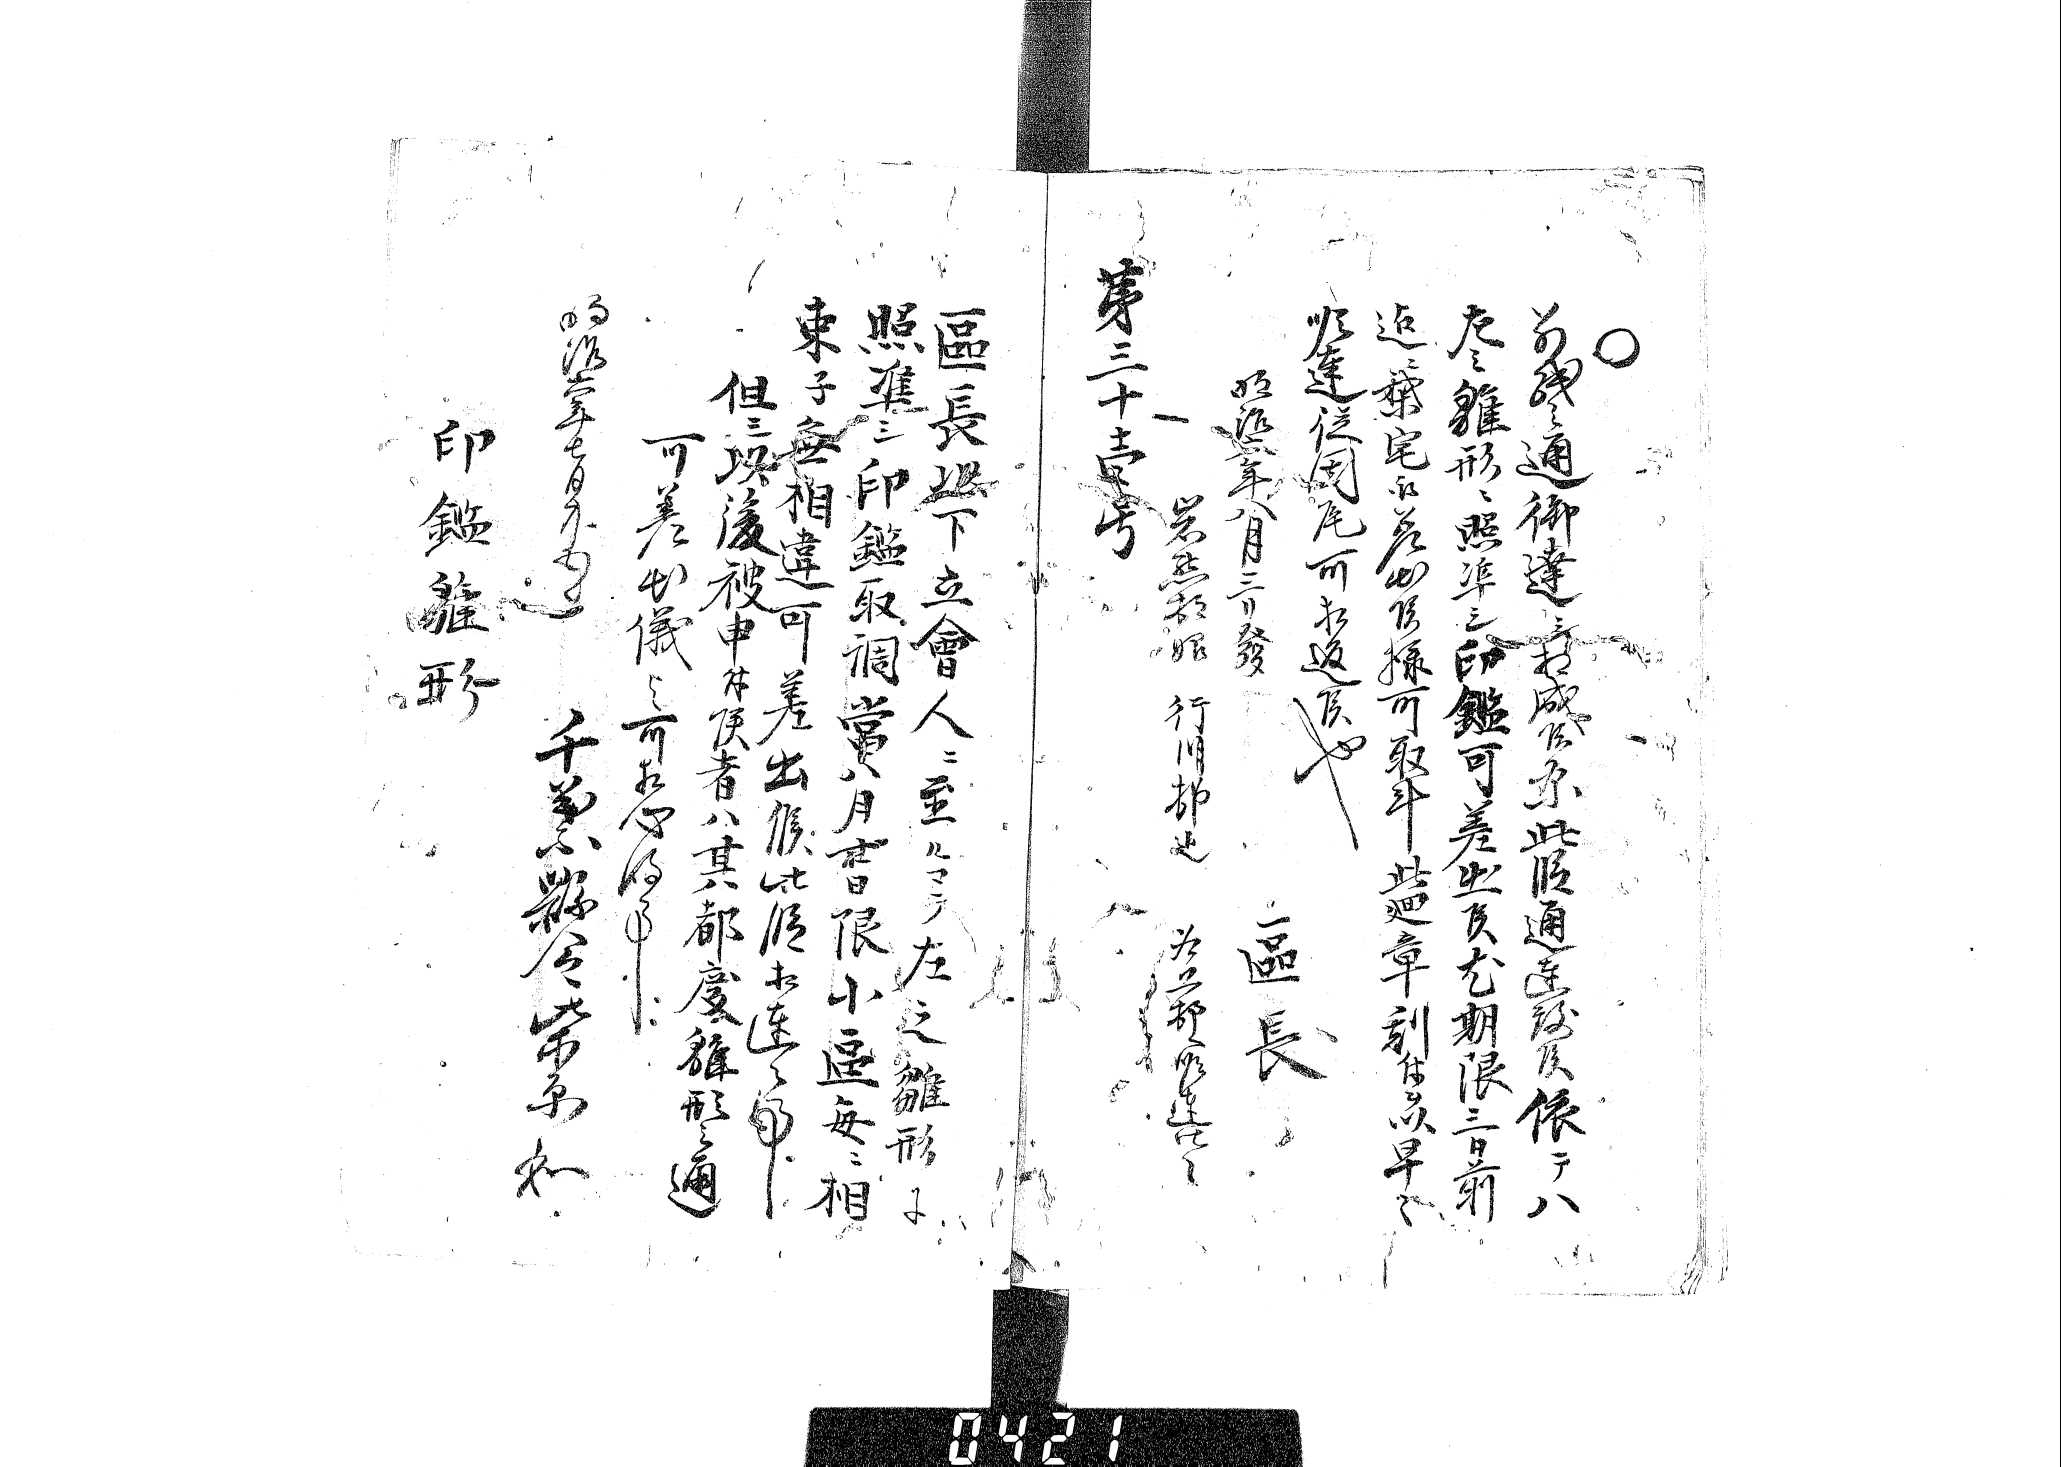 ○
前戝之通御達ニ相成候条此段通達致候依テハ
左之雛形ニ照準シ印鑑可差出候尤期限三日前
迄ニ拙宅江差出候様可取斗此廻章刻付ヲ以早々
順達従困尾可相返候也
明治六年八月三日發
區長
行川都
順達
第三十壹号
區長並下立會人ニ至ルマテ左之雛形ニ
照準シ印鑑取調當八月十五日限小區毎ニ相
束子無相違可差出候此段相達候事
但シ以後被申付候者ハ其都度雛形之通
可差出儀と可相心得事
明治六年七月
千葉縣令柴原和
印鑑雛形
0421